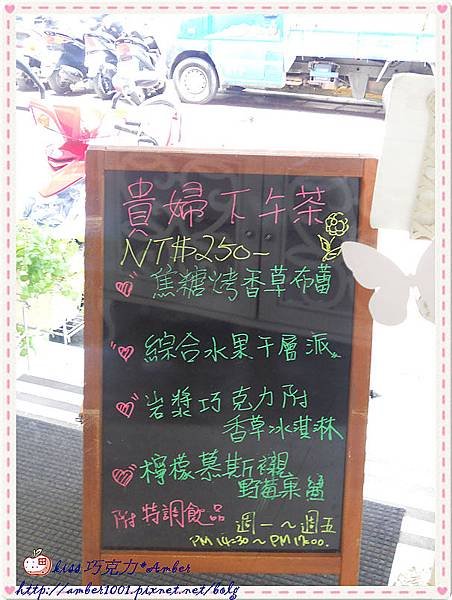 貴婦下午茶
NT$250-
焦糖烤香草布蕾
綜合水果千層派
岩漿巧克力附
香草冰淇淋
檸檬慕斯襯
野莓果醬
附 特調飲品 週一～週五
PM 14:30 ~ PM 17:00.
kiss 巧克力*Amber
http://amber1001.pixnet.net/bolg